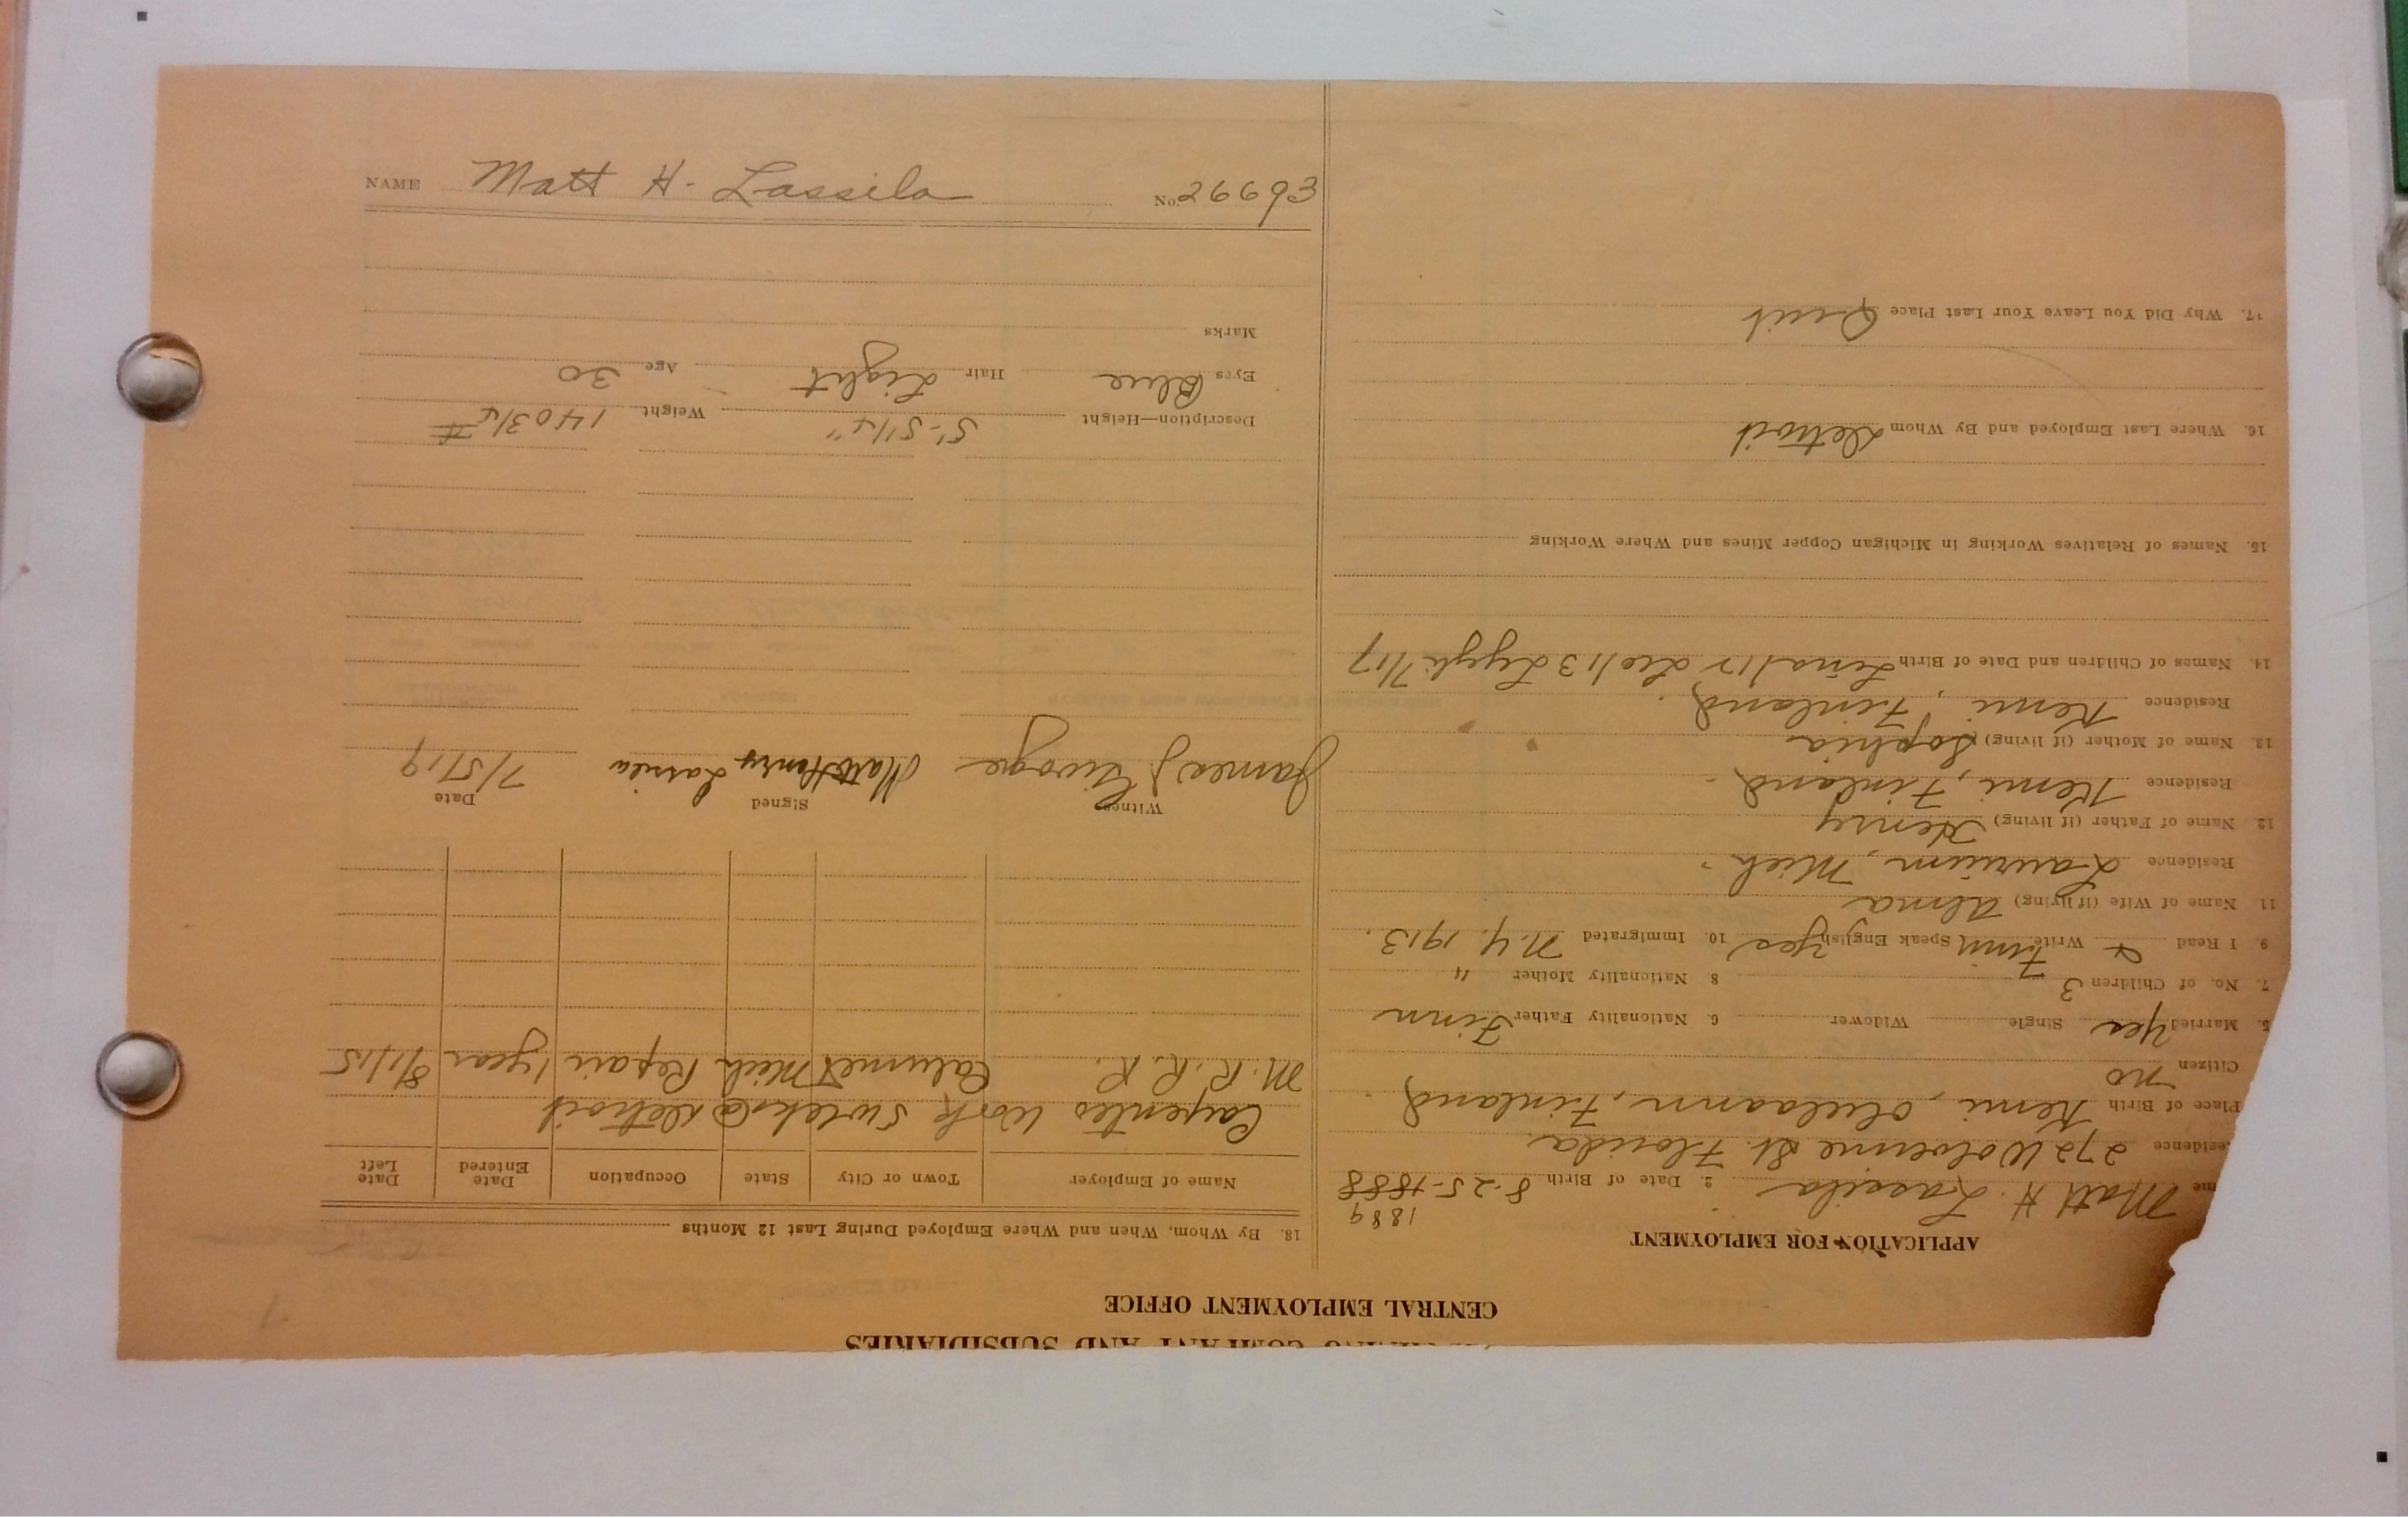 MINING COMPANY AND SUBSIDIARIES
CENTRAL EMPLOYMENT OFFICE
APPLICATION FOR EMPLOYMENT
1889
me Matt H. Lassila 2. Date of Birth 8-25-1888
esidence 272 Wolverine St. Florida
Place of Birth Kemi, Finland
Citizen no
5. Married Yes Single Widower 6. Nationality Father Finn
7. No. of Children 3 8 Nationality Mother "
9. I Read & Write Finn Speak English Yes 10. Immigrated N.Y. 1913.
11. Name of Wife (if living) Alma
Residence Laurium, Mich.
12. Name of Father (if living) Henry
Residence Kemi, Finland.
13. Name of Mother (if living) Sophia
Residence Kemi, Finland.
14. Names of Children and Date of Birth Lina/12 Leo/13 7/17
15. Names of Relatives Working in Michigan Copper Mines and Where Working
16. Where Last Employed and By Whom Detroit
17. Why Did You Leave Your Last Place Quit
18. By Whom, When and Where Employed During Last 12 Months
Name of Employer Town or City State Occupation Date Entered Date Left
Carpenter Work 5 wks @ Detroit
M. R. R. R. Calumet Mich Repair 1 year 8/1/15
Witness Signed Date
James J Matt Henry Lassila 7/5/19
Description—Height 5'-5 1/4" Weight 140 3/4 #
Eyes Blue Hair Light Age 30
Marks
NAME Matt H. Lassila No. 26693